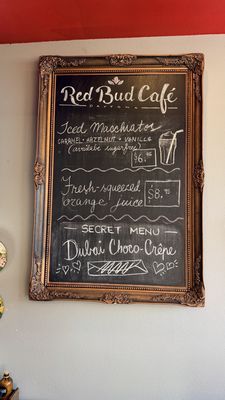 Red Bud Café
Iced Macchiatos
CARAMEL • HAZELNUT • VANILLA
(available sugarfree)
$6.95
Fresh-squeezed
orange juice
$8.
SECRET MENU
Dubai Choco-Crêpe